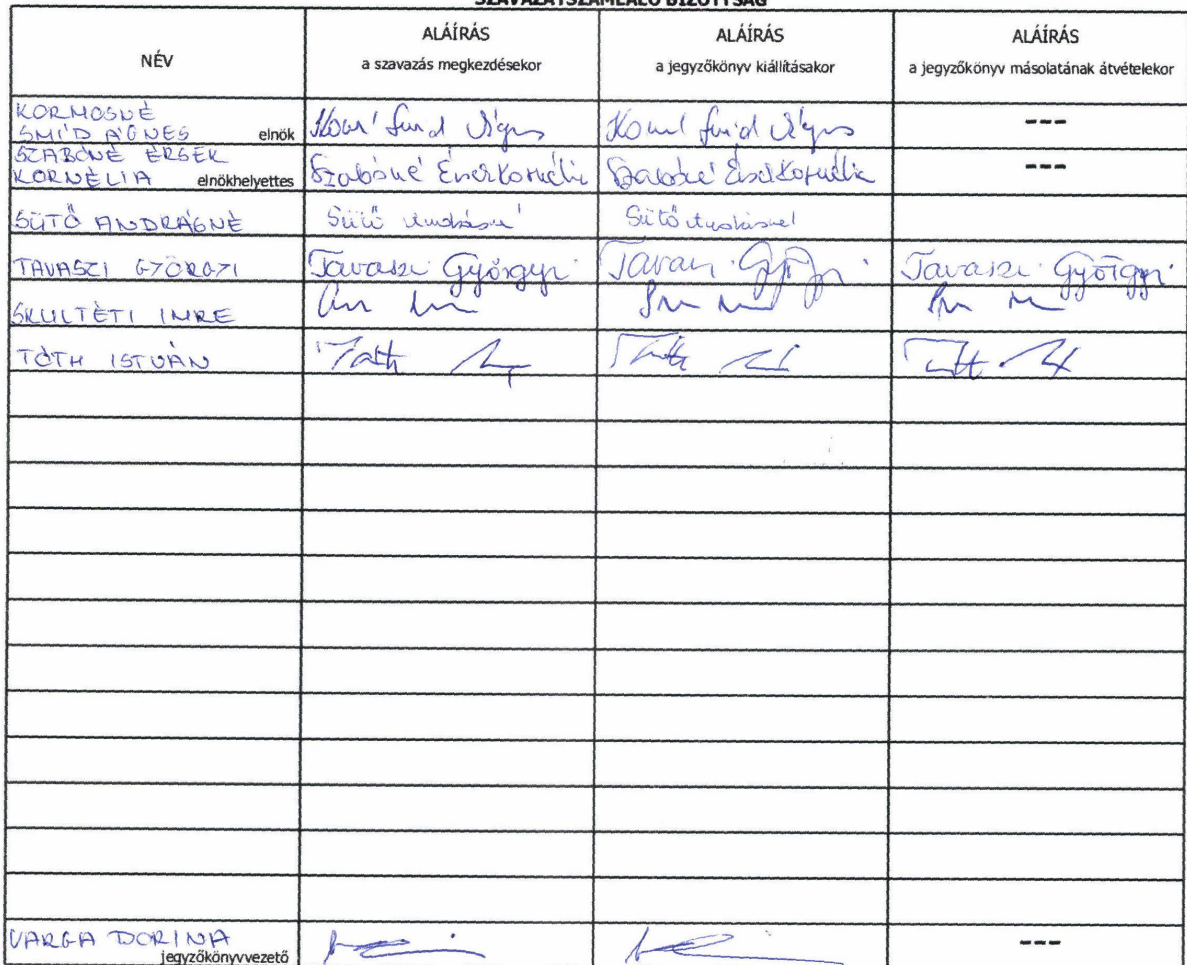 SZAVAZATSZÁMLÁLÓ BIZOTTSÁG
NÉV
ALÁÍRÁS
a szavazás megkezdésekor
ALÁÍRÁS
a jegyzőkönyv kiállításakor
ALÁÍRÁS
a jegyzőkönyv másolatának átvételekor
KORMOSNÉ
SMÍD ÁGNES elnök
---
SZABÓNÉ ÉRSEK
KORNÉLIA elnökhelyettes Szabóné Érsek Kornélia Szabóné Érsek Kornélia ---
SÜTŐ ANDRÁSNÉ Sütő Andrásné Sütő Andrásné
TAVASZI GYÖRGYI Tavaszi Györgyi Tavaszi Györgyi Tavaszi Györgyi
SKULTÉTI IMRE
TÓTH ISTVÁN
VARGA DORINA
jegyzőkönyvvezető
---